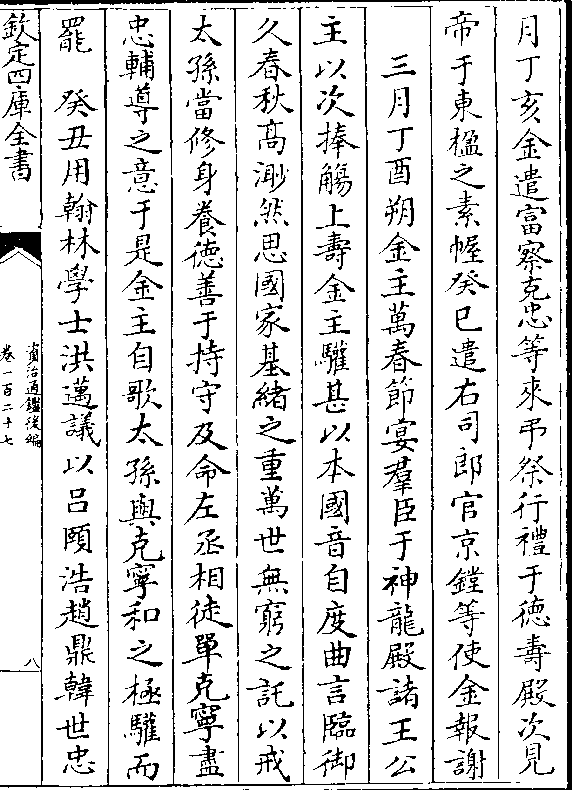 月丁亥金遣富察克忠等來弔祭行禮于德壽殿次見
帝于東楹之素幄癸巳遣右司郎官京鏜等使金報謝
三月丁酉朔金主萬春節宴羣臣于神龍殿諸王公
主以次捧觴上壽金主驩甚以本國音自度曲言臨御
久春秋高渺然思國家基緒之重萬世無窮之託以戒
太孫當修身養德善于持守及命左丞相徒單克寧盡
忠輔導之意于是金主自歌太孫與克寧和之極驩而
罷　癸丑用翰林學士洪邁議以呂頤浩趙鼎韓世忠
欽定四庫全書
資治通鑑後編
卷一百二十七
八